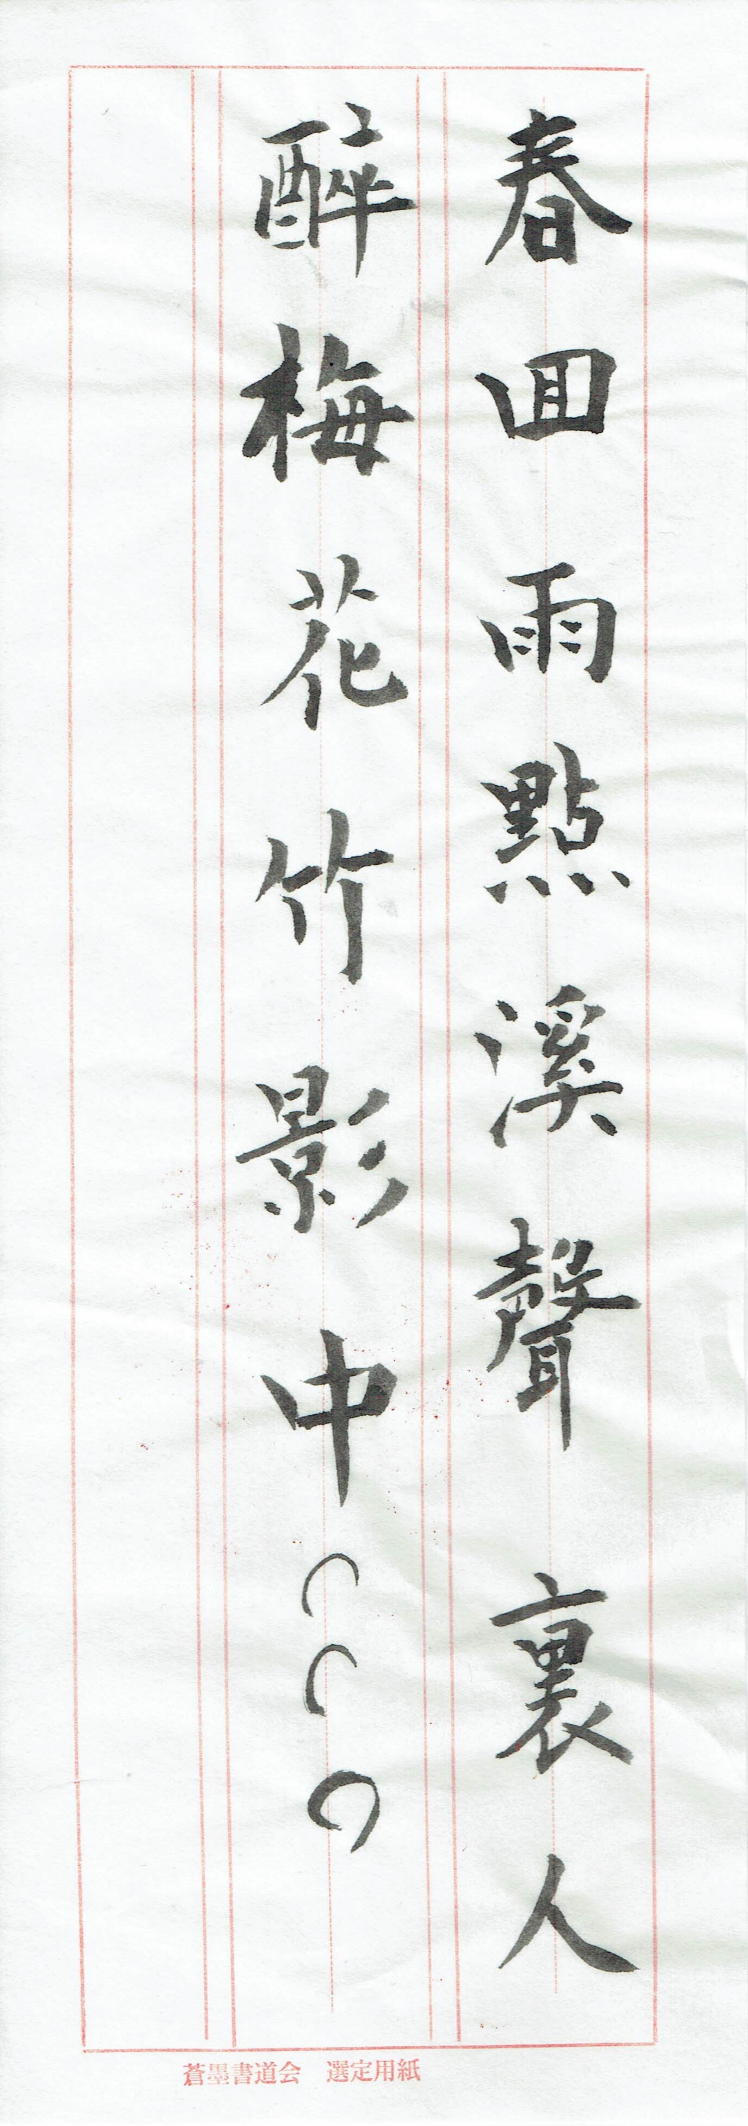 春回雨點溪聲裏人
醉梅花竹影中
蒼墨書道会 選定用紙